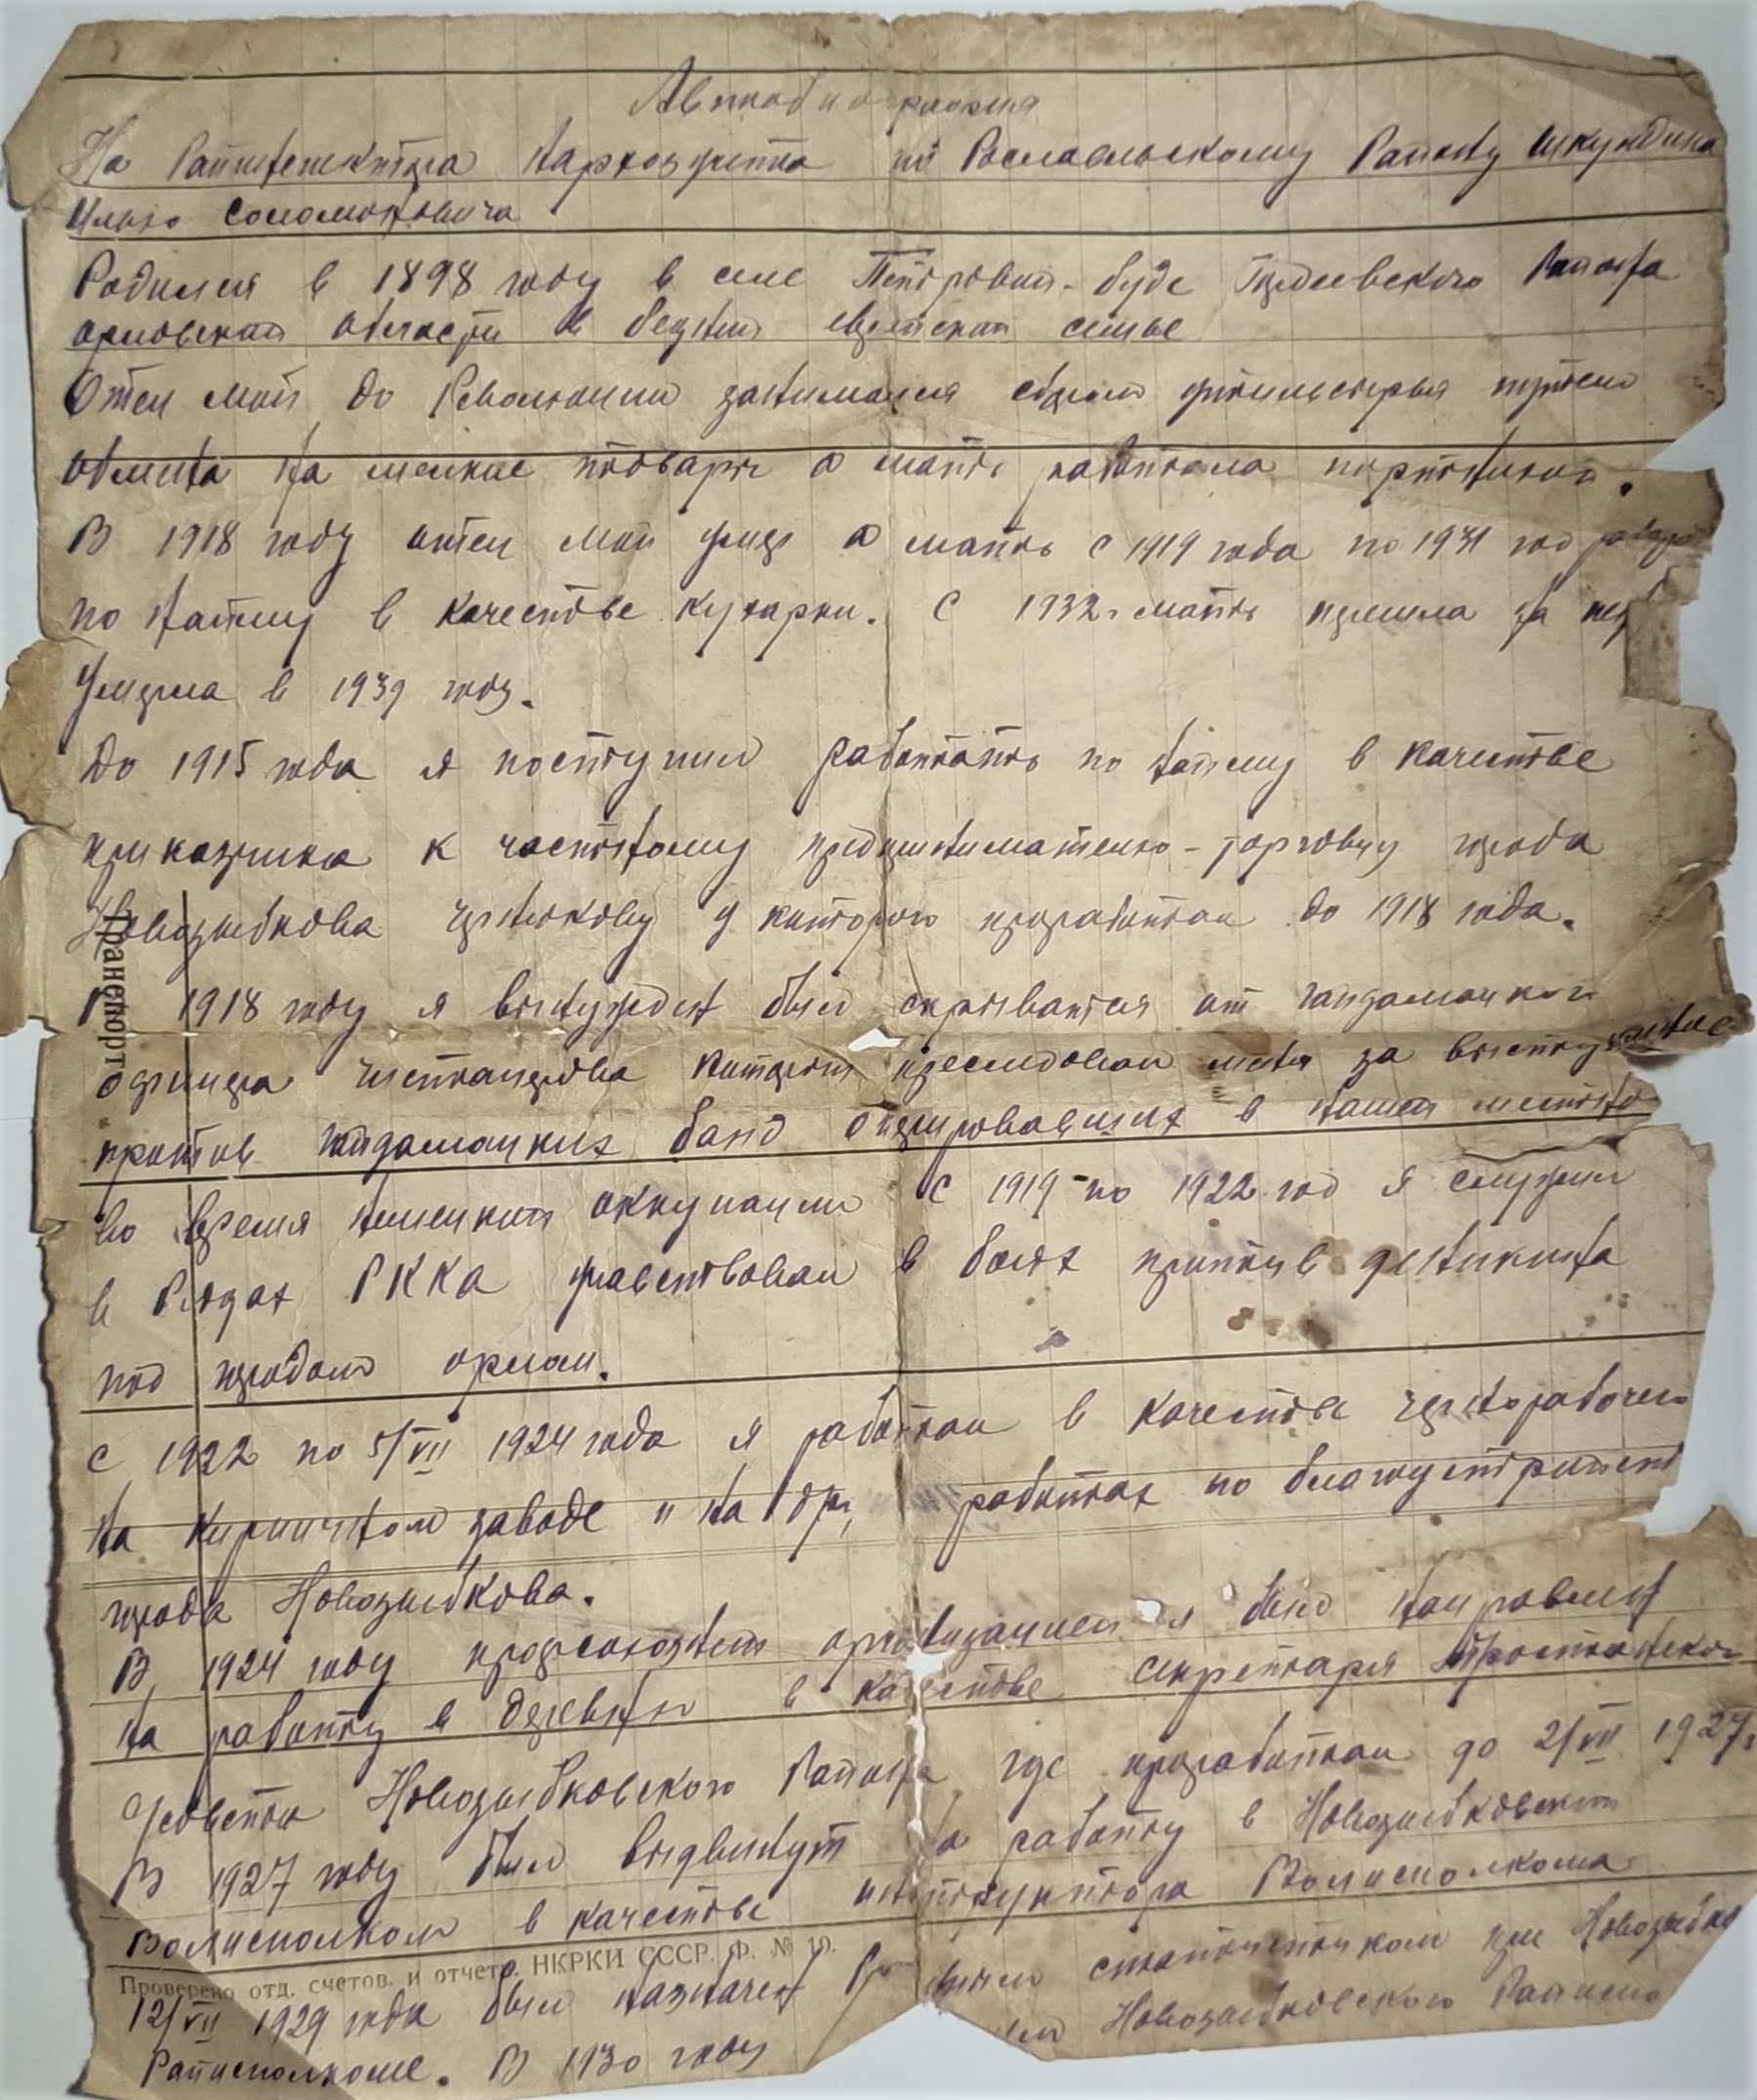 Автобиография
На Райинспектора Нархозучета по Рославльскому Району Шкундина
Илью Соломоновича
Родился в 1898 году в селе Петровай-буде Гордеевского Района
орловской области в бедной еврейской семье
Отец мой до Революции занимался сбором утильсырья путем
обмена на мелкие товары а мать работала портнихой.
В 1918 году отец мой умер а мать с 1919 года по 1931 год
по найму в качестве кухарки. С 1932 г мать перешла на
Умерла в 1939 году.
До 1915 года я поступил работать по найму в качестве
приказчика к частному предпринимателю-торговцу города
Новозыбкова у которого проработал до 1918 года.
В 1918 году я вынужден был скрываться от гайдамацкого
офицера который преследовал меня за выступление
против гайдамацких банд оперировавших в нашей
во время немецкой оккупации С 1919 по 1922 год я служил
в Рядах РККА участвовал в боях против деникина
под городом орлом.
С 1922 по 5/VII 1924 года я работал в качестве чернорабочего
на кирпичном заводе и на др. работах по
города Новозыбкова.
В 1924 году профсоюзной организацией я был направлен
на работу в деревню в качестве секретаря
с/совета Новозыбковского Района где проработал до 2/VII 1927г
В 1927 году был выдвинут на работу в Новозыбковский
Волисполком в качестве инструктора Волисполкома
Проверено отд. счетов. и отчетн. НКРКИ СССР. Ф. № 10.
12/VII 1929 года был назначен статистиком при
Райисполкоме. В 1930 году Новозыбковского
Транспорт